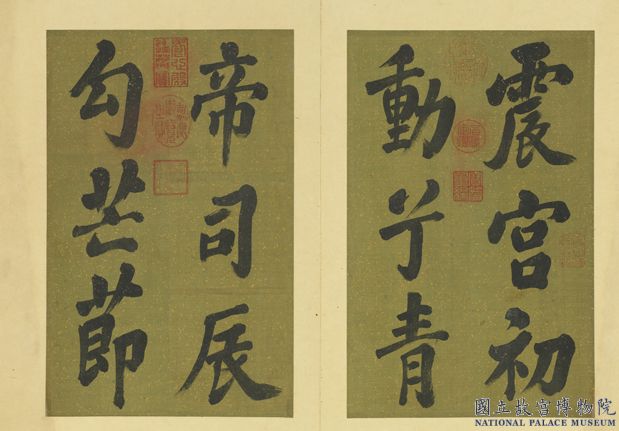 震宮初
動兮青
帝司辰
勾芒節
國立故宮博物院
NATIONAL PALACE MUSEUM